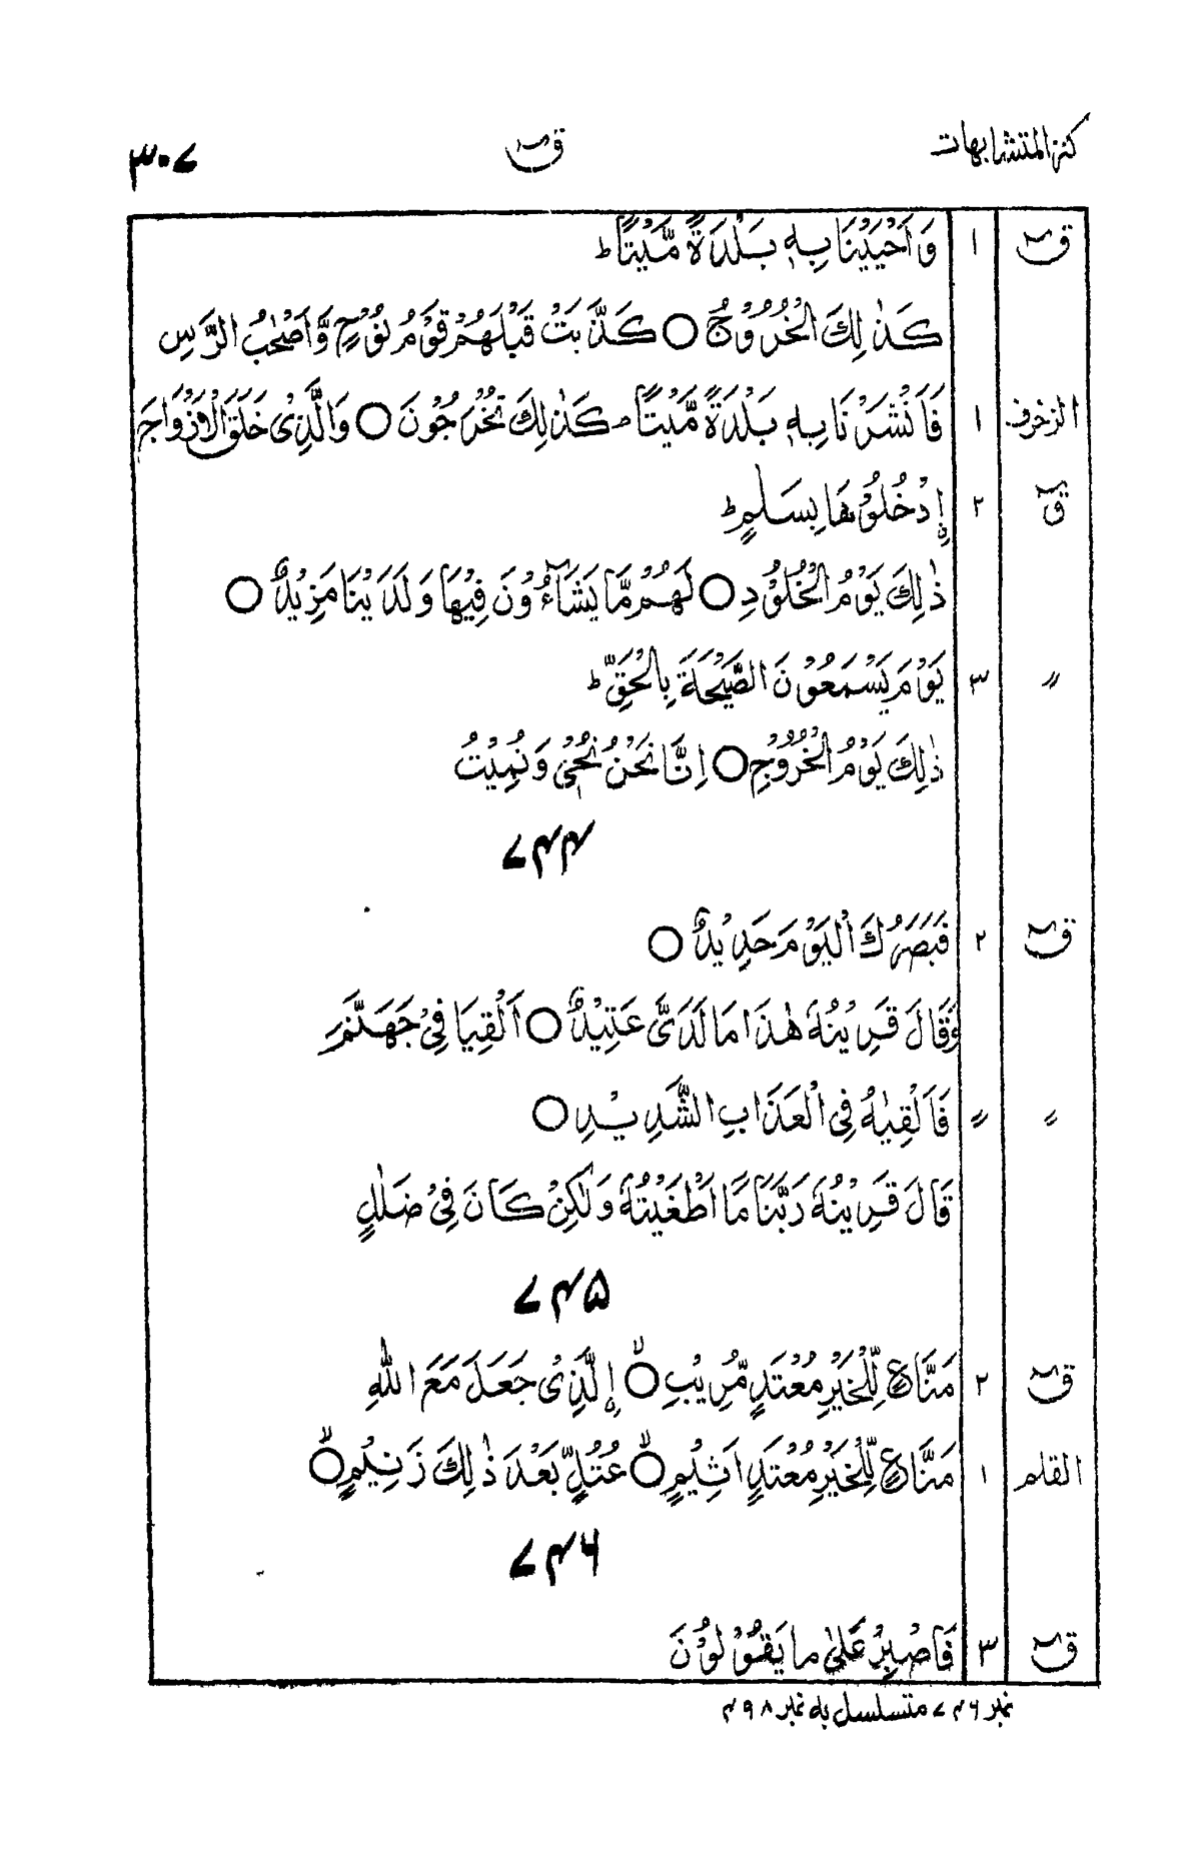 كنز المتشابهات قٓ ٣٠٧
قٓ ١ وَاَحْيَيْنَا بِهٖ بَلْدَةً مَّيْتًا ؕ
كَذٰلِكَ الْخُرُوْجُ ○ كَذَّبَتْ قَبْلَهُمْ قَوْمُ نُوْحٍ وَّاَصْحٰبُ الرَّسِّ
الزخرف ١ فَاَنْشَرْنَا بِهٖ بَلْدَةً مَّيْتًا ۚ كَذٰلِكَ تُخْرَجُوْنَ ○ وَالَّذِىْ خَلَقَ الْاَزْوَاجَ
قٓ ٢ اِدْخُلُوْهَا بِسَلٰمٍ ؕ
ذٰلِكَ يَوْمُ الْخُلُوْدِ ○ لَهُمْ مَّا يَشَآءُوْنَ فِيْهَا وَلَدَيْنَا مَزِيْدٌ ○
〃 ٣ يَوْمَ يَسْمَعُوْنَ الصَّيْحَةَ بِالْحَقِّ ؕ
ذٰلِكَ يَوْمُ الْخُرُوْجِ ○ اِنَّا نَحْنُ نُحْىٖ وَنُمِيْتُ
۷۴۴
قٓ ٢ فَبَصَرُكَ الْيَوْمَ حَدِيْدٌ ○
وَقَالَ قَرِيْنُهٗ هٰذَا مَا لَدَىَّ عَتِيْدٌ ○ اَلْقِيَا فِىْ جَهَنَّمَ
〃 〃 فَاَلْقِيٰهُ فِى الْعَذَابِ الشَّدِيْدِ ○
قَالَ قَرِيْنُهٗ رَبَّنَا مَا اَطْغَيْتُهٗ وَلٰكِنْ كَانَ فِىْ ضَلٰلٍ
۷۴۵
قٓ ٢ مَنَّاعٍ لِّلْخَيْرِ مُعْتَدٍ مُّرِيْبِ ○ۙ اِلَّذِىْ جَعَلَ مَعَ اللّٰهِ
القلم ١ مَنَّاعٍ لِّلْخَيْرِ مُعْتَدٍ اَثِيْمٍ ○ۙ عُتُلٍّ بَعْدَ ذٰلِكَ زَنِيْمٍ ○ۙ
۷۴۶
قٓ ٣ فَاصْبِرْ عَلٰى ما يَقُوْلُوْنَ
نمبر ۷۴۶ متسلسل به نمبر ۴۹۸